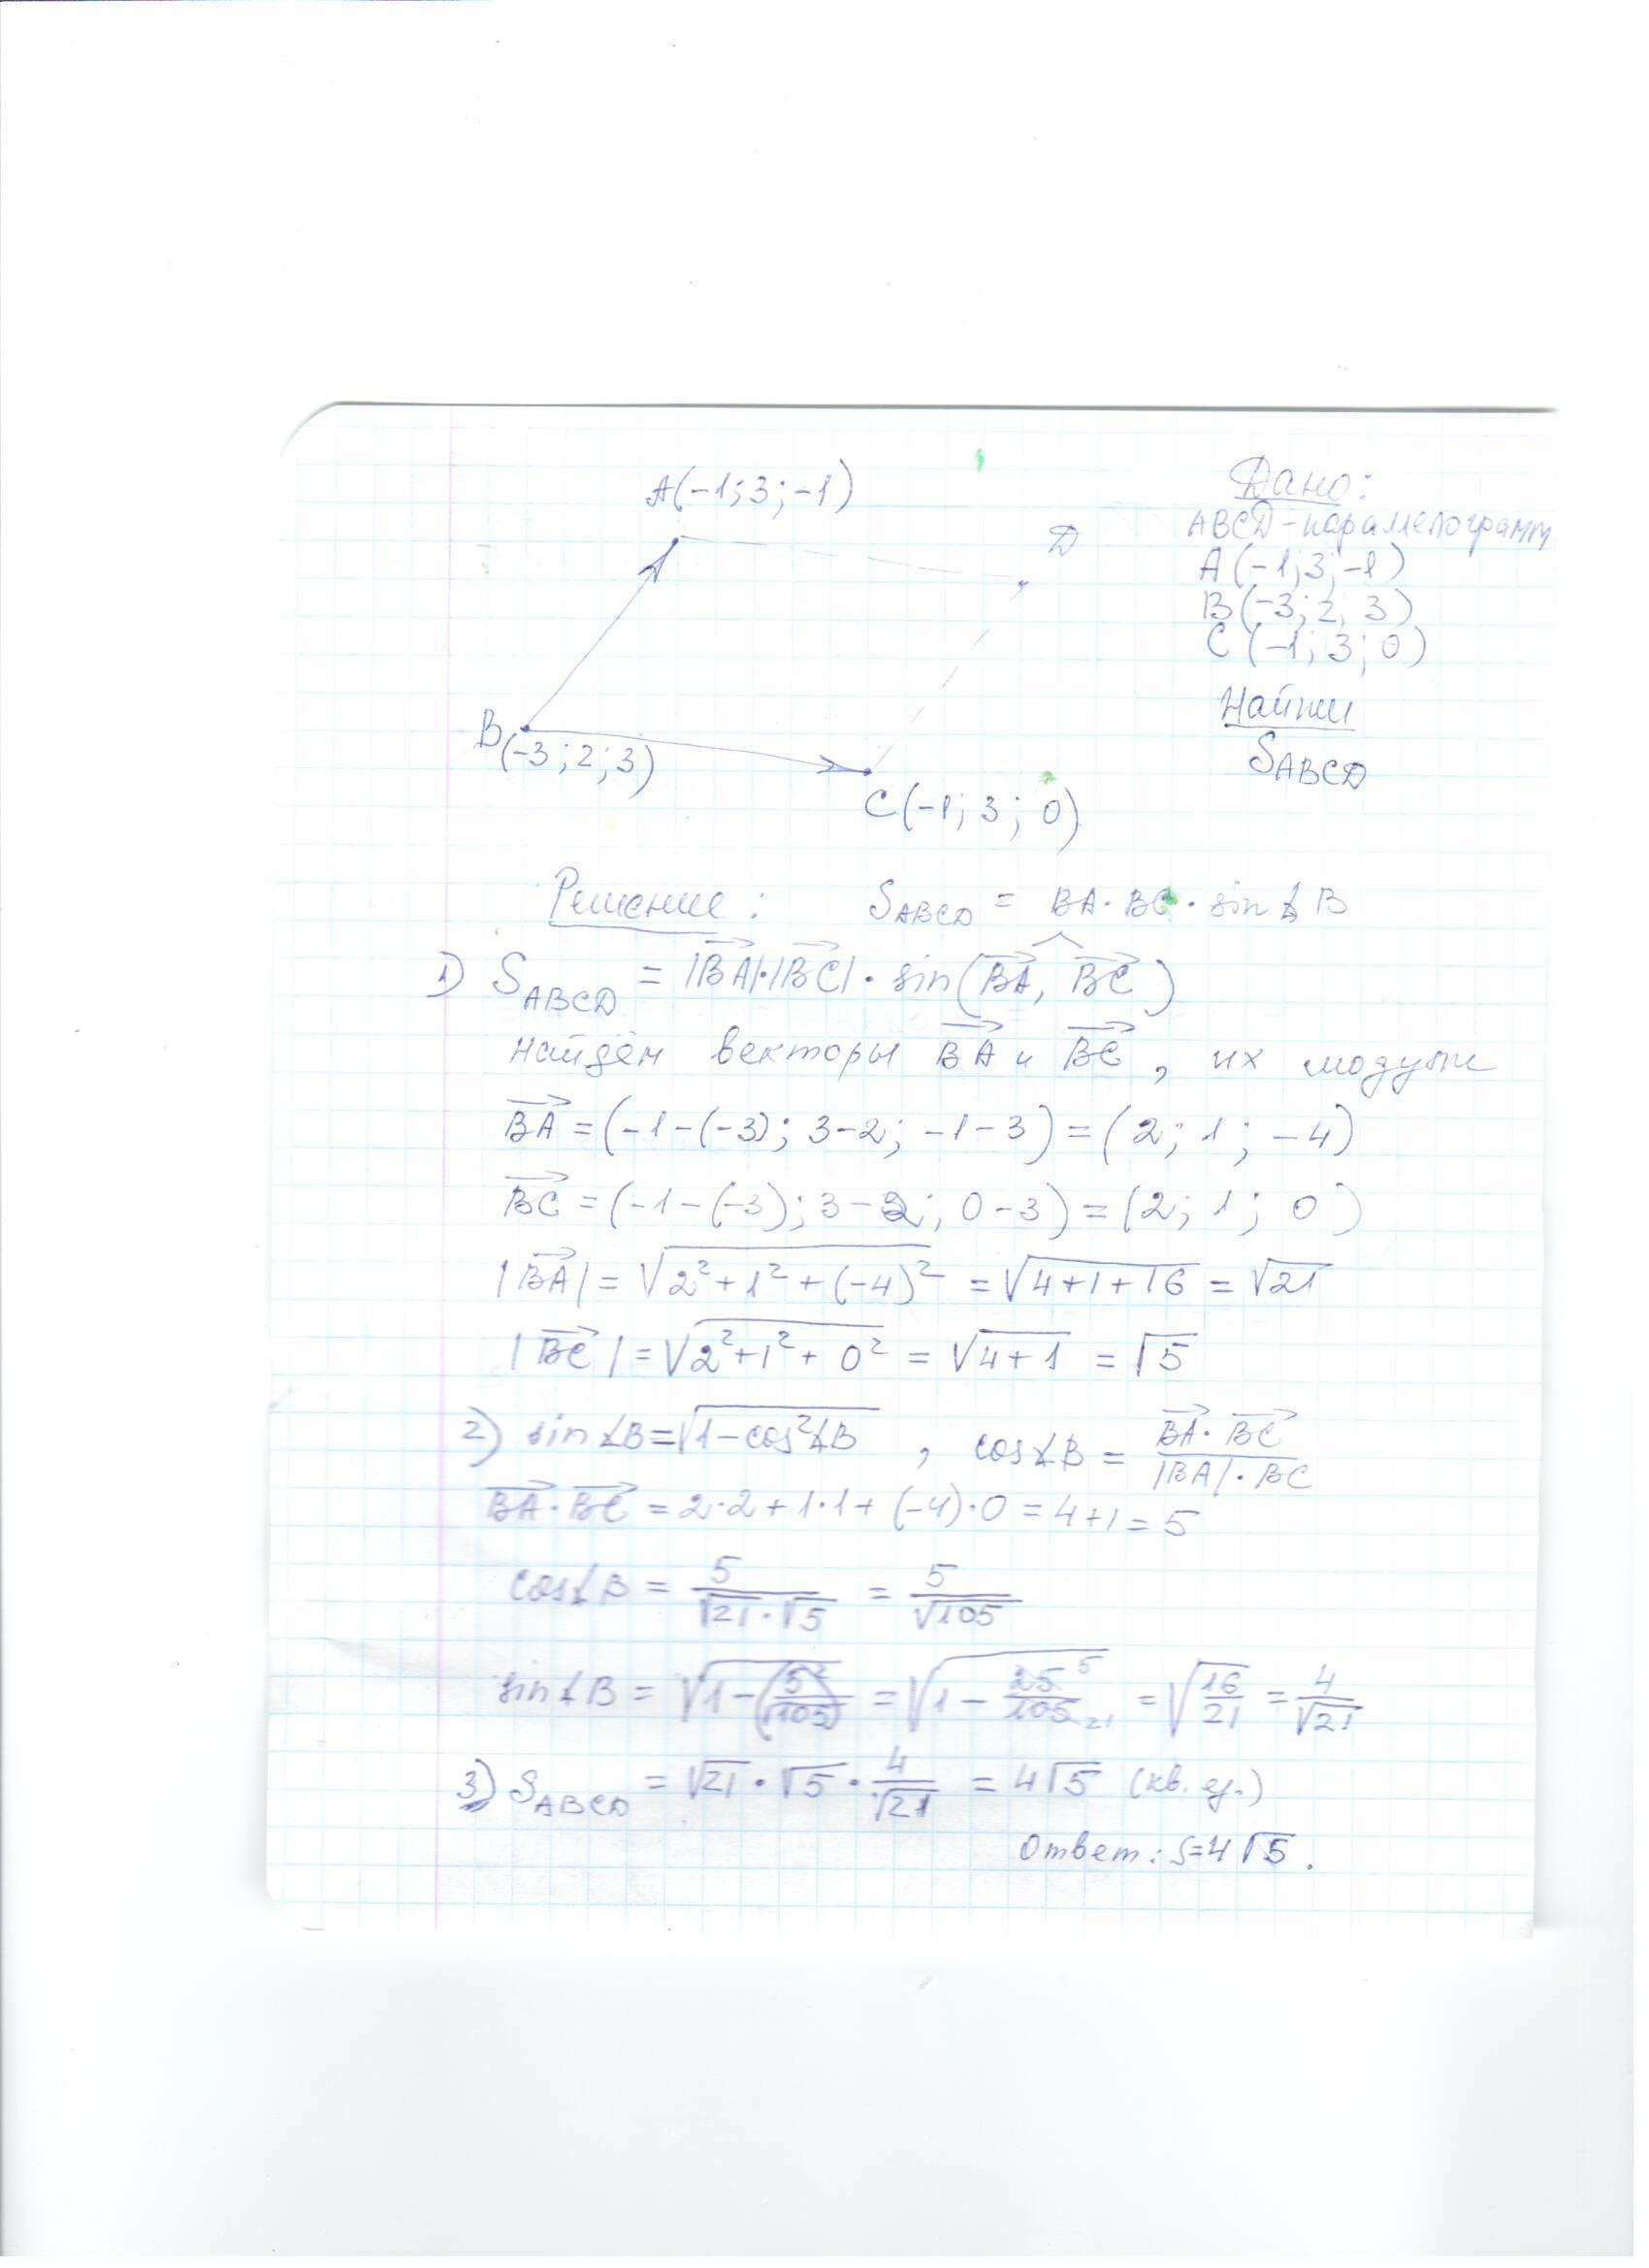 A(-1; 3; -1)
D
B(-3; 2; 3)
C(-1; 3; 0)
Дано:
ABCD - параллелограмм
A(-1; 3; -1)
B(-3; 2; 3)
C(-1; 3; 0)
Найти
S_ABCD
Решение: S_ABCD = BA · BC · sin∠B
1) S_ABCD = |BA| · |BC| · sin(BA, BC)
найдём векторы BA и BC, их модули
BA = (-1-(-3); 3-2; -1-3) = (2; 1; -4)
BC = (-1-(-3); 3-2; 0-3) = (2; 1; 0)
|BA| = √(2² + 1² + (-4)²) = √(4+1+16) = √21
|BC| = √(2² + 1² + 0²) = √(4+1) = √5
2) sin∠B = √(1-cos²∠B) , cos∠B = BA · BC / |BA| · BC
BA · BC = 2·2 + 1·1 + (-4)·0 = 4+1 = 5
cos∠B = 5/(√21 · √5) = 5/√105
sin∠B = √(1-(5/√105)²) = √(1 - 25/105 5/21) = √(16/21) = 4/√21
3) S_ABCD = √21 · √5 · 4/√21 = 4√5 (кв. ед.)
Ответ: S=4√5.